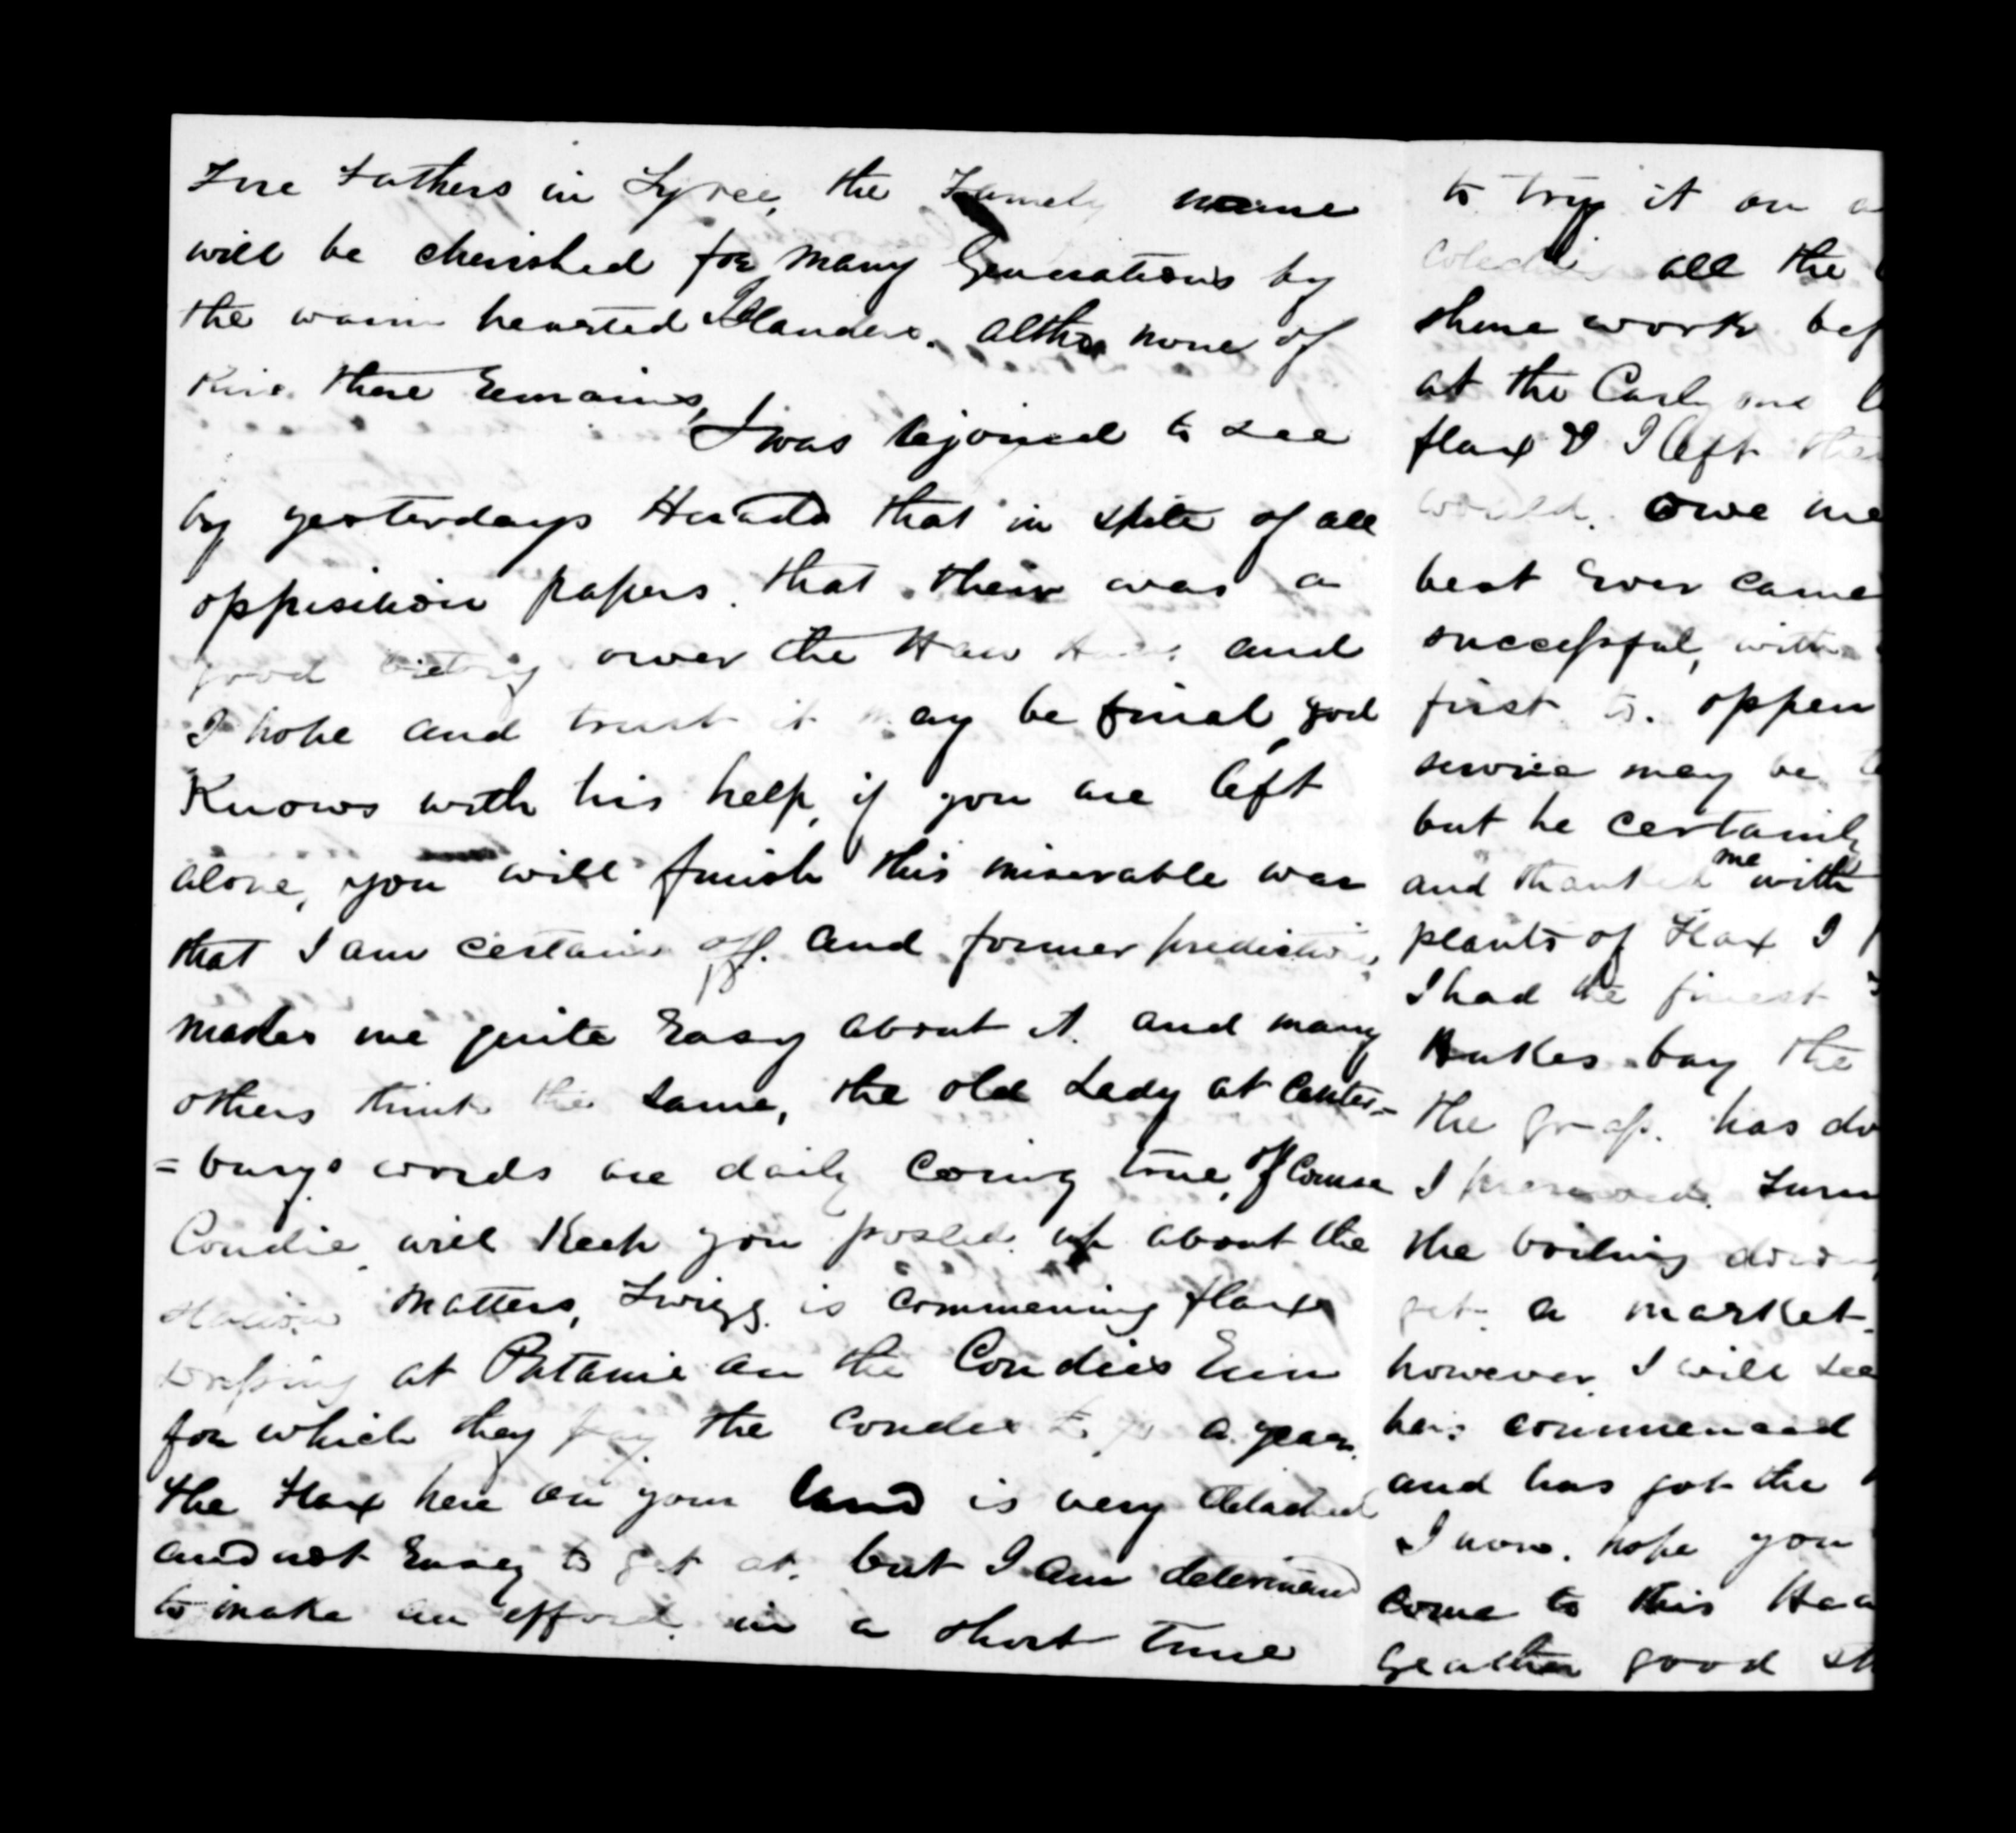 Fore Fathers in Tyree, the Famely name
will be cherished for many Generations by
the warm hearted Ilanders. altho none of
Kin. there Remains,
I was Rejoiced to see
by yesterdays Herald that in spite of all
opposition papers. that their was a
good victory over the Hau Haus and
I hope and trust it may be final, god
Knows with his help, if you are left
alone, you will finish this miserable war
that I am certain off. and former predictions,
makes me quite Easy about it. and many
others think the same, the old Lady at Canter=
=burys words are daily coming true, off Course
Condie will Keep you posted up about the
Station matters, Twigg. is commening flax
at Patanie on the Condies Run
for which they pay the Condie a year.
the Flax here on your land is very detached
and not Easey to get at. but I am determined
to make an efford in a short time
to try it on
all the
shine work bef
at the
flax & I left
would. owe me
best Ever came
successful, with
first to. oppen
service may be
but he certainly
and thanked me with
plants of Flax I
I had the finest
Hakes bay the
the grass. has do
I
the boiling down
get a market.
however. I will see
has commenced
and has got the
I now. hope you
come to this
good